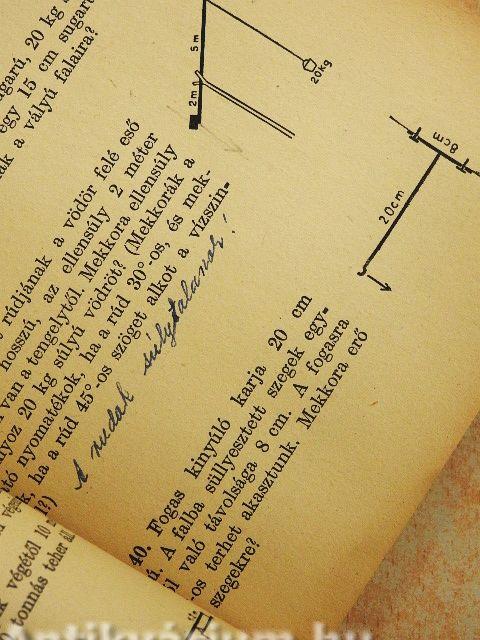 sugarú, 20 kg
egy 15 cm sugarú
a vályú falaira?
5 m
2 m
20 kg
rúdjának a vödör felé eső
hosszú, az ellensúly 2 méter
van a tengelytől. Mekkora ellensúly
20 kg súlyú vödröt? (Mekkorák a
nyomatékok, ha a rúd 30°-os, és mek-
ha a rúd 45°-os szöget alkot a vízszin-
A rudak súlytalanok!
8cm
20cm
40. Fogas kinyúló karja 20 cm
A falba süllyesztett szegek egy-
való távolsága 8 cm. A fogasra
-os terhet akasztunk. Mekkora erő
szegekre?
végétől 10
tonnás teher
Antikvárium.hu